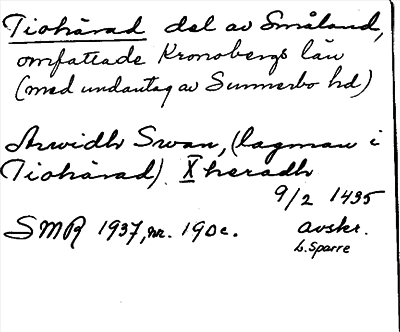 Tiohärad del av Småland,
omfattade Kronobergs län
(med undantag av Sunnerbo hd)
Arvidh Swan, (lagman i
Tiohärad). X heradh
9/2 1435
SMR 1937, nr. 190 c. avskr.
L. Sparre